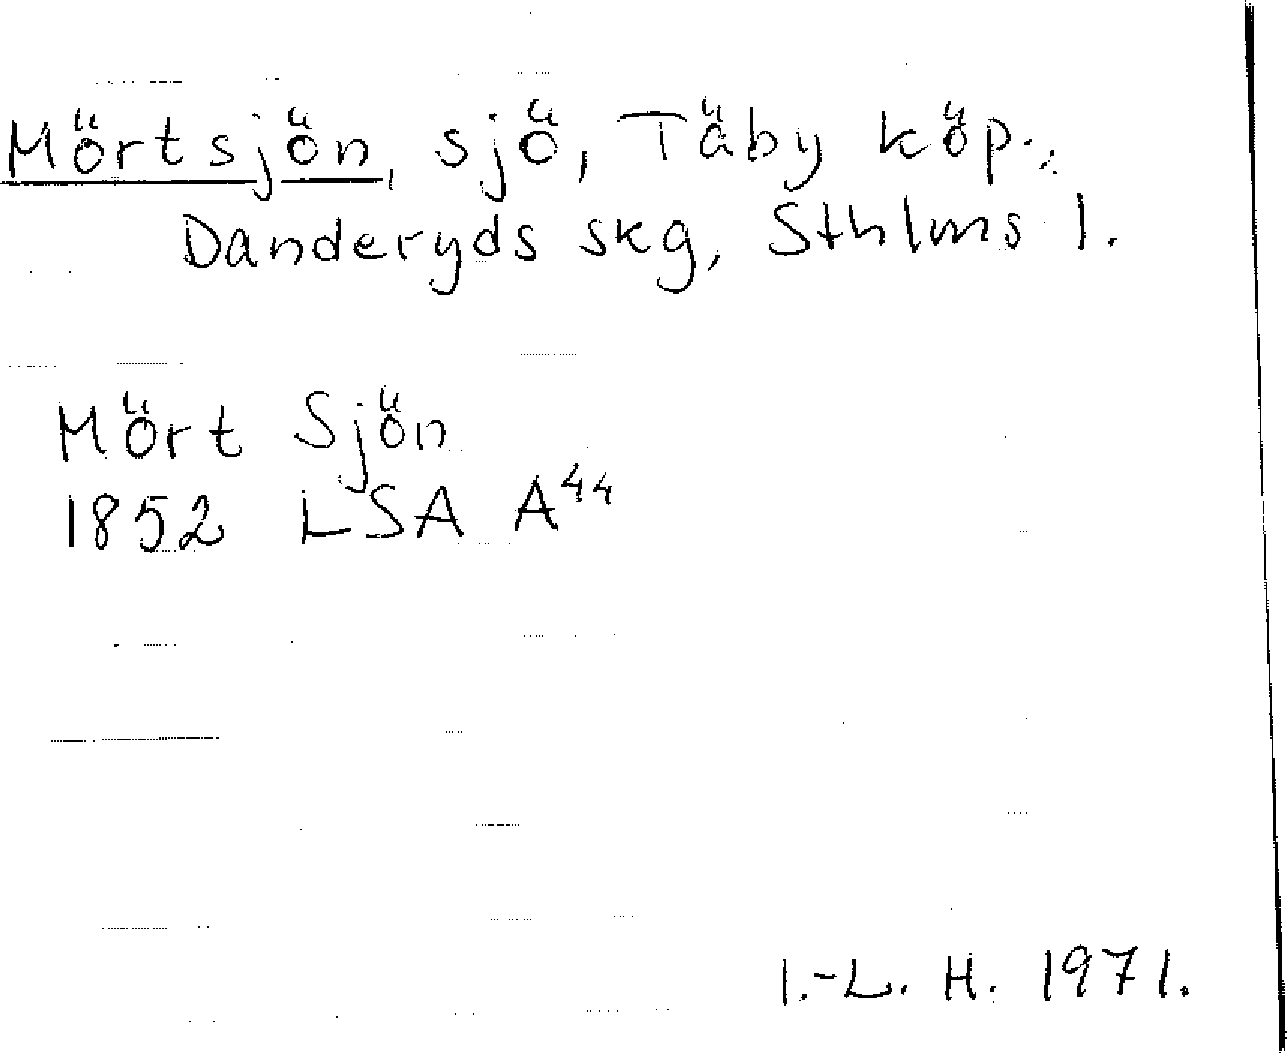 Mörtsjön, sjö, Täby köp.,
Danderyds skg, Sthlms l.
Mört Sjön
1852 LSA A44
I.-L. H. 1971.